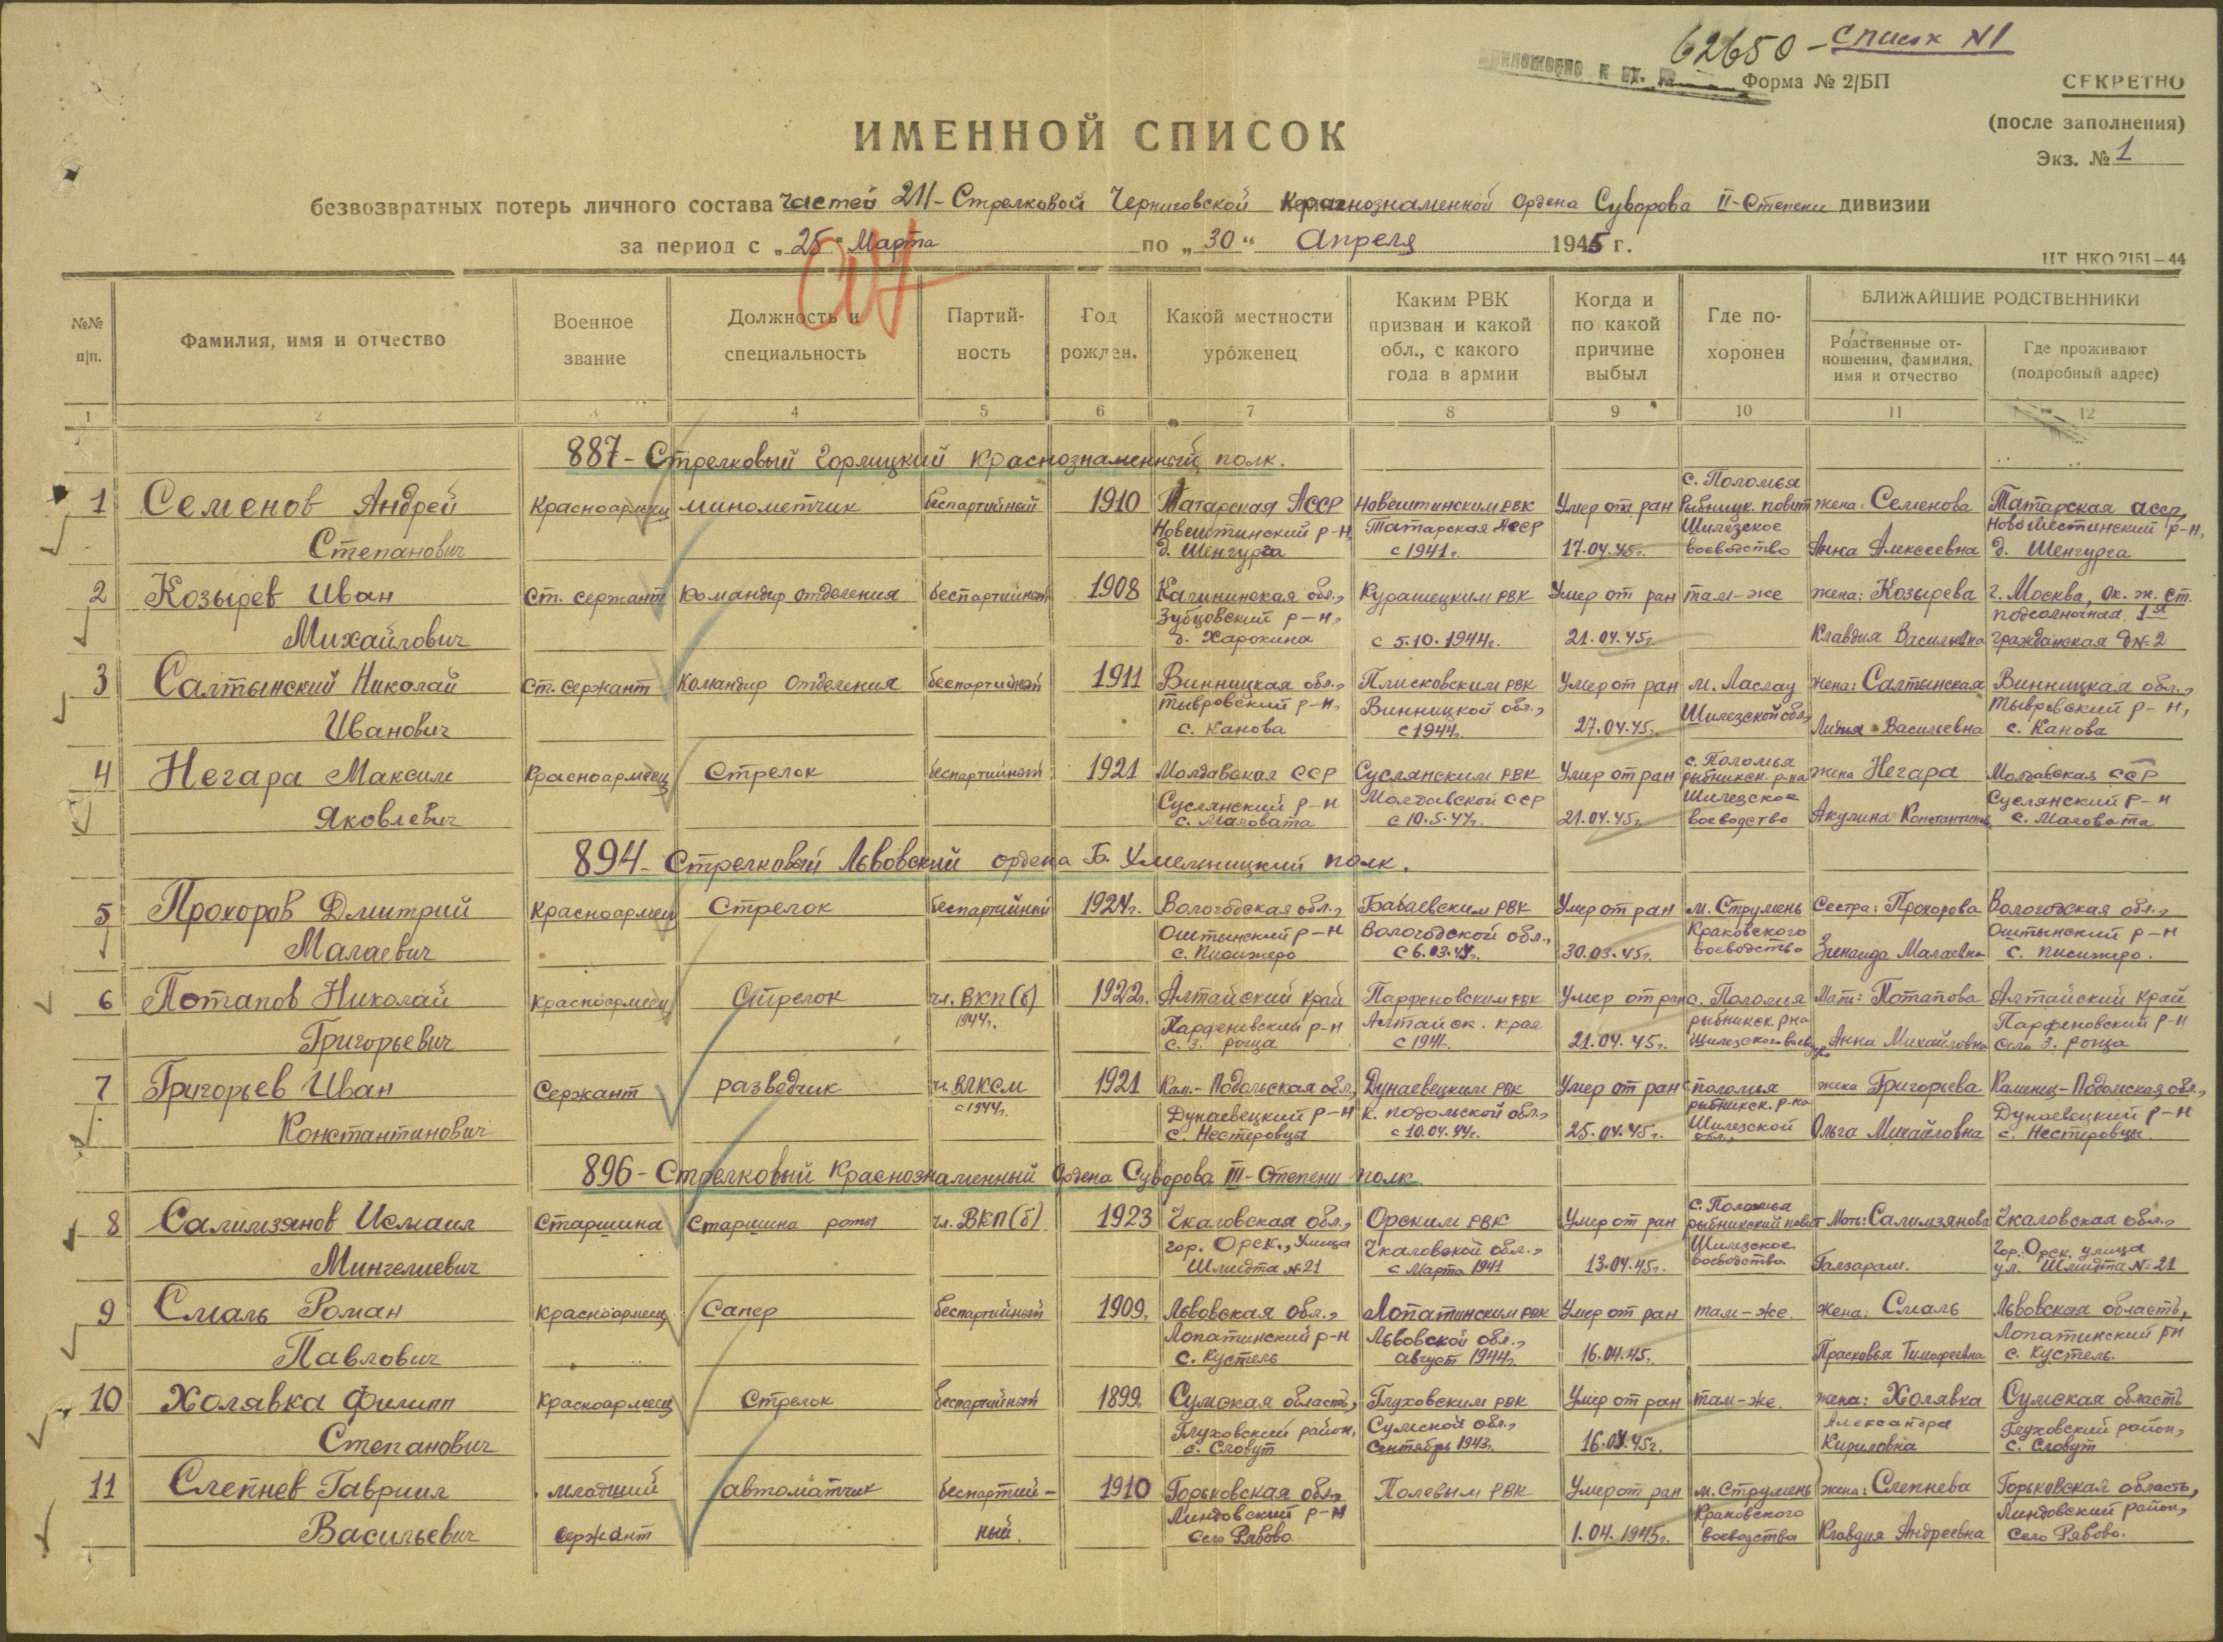 62650 – Список №1
Форма № 2/БП
СЕКРЕТНО
(после заполнения)
Экз. № 1
ИМЕННОЙ СПИСОК
безвозвратных потерь личного состава частей 211-Стрелковой Черниговской Краснознаменной Ордена Суворова II-Степени дивизии
за период с „25" Марта по „30" Апреля 1945 г.
ЦТ НКО 2151—44
№№ п/п.
Фамилия, имя и отчество
Военное звание
Должность и специальность
Партийность
Год рожден.
Какой местности уроженец
Каким РВК призван и какой обл., с какого года в армии
Когда и по какой причине выбыл
Где похоронен
БЛИЖАЙШИЕ РОДСТВЕННИКИ
Родственные отношения, фамилия, имя и отчество
Где проживают (подробный адрес)
1 2 3 4 5 6 7 8 9 10 11 12
887- Стрелковый Горлицкий Краснознаменный полк.
1 Семенов Андрей Красноармеец минометчик беспартийный 1910 Татарская АССР Новешминским РВК Умер от ран с. Поломья Рыбницк. повит жена: Семенова Татарская асср,
Степанович д. Шенгурга Татарская АССР с 1941г. 17.04.45г. Шилезское воеводство Анна Алексеевна д. Шенгурга
2 Козырев Иван Ст. сержант Командир отделения беспартийный 1908 Калининская обл., Курашецким РВК Умер от ран там-же жена: Козырева г. Москва, Ок. ж. ст.
Михайлович Зубцовский р-н, д. Харохина с 5.10.1944г. 21.04.45г. Клавдия Васильевна подсолночная 1я гражданская д№2
3 Салтынский Николай Ст. сержант Командир отделения беспартийный 1911 Винницкая обл., Плисковским РВК Умер от ран м. Ласлау жена: Салтынская Винницкая обл.,
Иванович Тывровский р-н, с. Канова Винницкой обл., с 1944г. 27.04.45г. Шилезской обл. Лидия Васильевна Тывровский р-н, с. Канова
4 Негара Максим Красноармеец Стрелок беспартийный 1921 Молдавская ССР Суслянским РВК Умер от ран с. Поломья рыбникск. р-на жена Негара Молдавская ССР
Яковлевич Суслянский р-н с. Маловата Молдавской ССР с 10.5.44г. 21.04.45г. Шилезское воеводство Акулина Суслянский р-н с. Маловата
894- Стрелковый Львовский ордена Б. Хмельницкий полк.
5 Прохоров Дмитрий Красноармеец Стрелок беспартийный 1924г. Вологодская обл., Бабаевским РВК Умер от ран м. Струмень Сестра: Прохорова Вологодская обл.,
Малаевич Оштинский р-н с. Писижеро Вологодской обл., 30.03.45г. Краковского воеводство Зинаида Малаевна Оштинский р-н с. писижеро.
6 Потапов Николай Красноармеец Стрелок чл. ВКП(б) 1944г. 1922г. Алтайский край Парфеновским РВК Умер от ран с. Поломья Мать: Потапова Алтайский край
Григорьевич Парфеневский р-н с. З. роща Алтайск. края с 1941г. 21.04.45г. рыбникск. рна Анна Михайловна Парфеновский р-н село З. роща
7 Григорьев Иван Сержант разведчик чл. ВЛКСМ с 1944г. 1921 Кам.-Подольская обл., Дунаевецким РВК Умер от ран с поломья жена Григорьева Каменец-Подольская обл.,
Константинович Дунаевецкий р-н с. Нестеровцы К. подольской обл., с 10.04.44г. 25.04.45г. рыбникск. р-на Шилезской обл. Ольга Михайловна Дунаевецкий р-н с. Нестеровцы.
896- Стрелковый Краснознаменный Ордена Суворова III-Степени полк
8 Салимзянов Исмаил Старшина Старшина роты чл. ВКП(б) 1923 Чкаловская обл., Орским РВК Умер от ран с. Поломья рыбникский повит Мать: Салимзянова Чкаловская обл.,
Мингелиевич гор. Орск., Улица Шмидта №21 Чкаловской обл., с Марта 1941 13.04.45г. Шилезское воеводства Галзарам. Гор. Орск. улица ул. Шмидта №21
9 Смаль Роман Красноармеец Сапер беспартийный 1909. Львовская обл., Лопатинским РВК Умер от ран там-же. Жена: Смаль Львовская область,
Павлович Лопатинский р-н с. Кустель Львовской обл., август 1944г. 16.04.45г. Прасковья Тимофеевна Лопатинский рн с. Кустель.
10 Холявка Филипп Красноармеец Стрелок беспартийный 1899. Сумская область, Глуховским РВК Умер от ран там-же. жена: Холявка Сумская область
Степанович Глуховский район, с. Словут Сумской обл., Сентябрь 1943г. 16.04.45г. Александра Кириловна Глуховский район, с. Словут
11 Слепнев Гавриил младший автоматчик беспартий- 1910 Горьковская обл., Полевым РВК Умер от ран м. Струмень жена: Слепнева Горьковская область,
Васильевич сержант ный Линдовский р-н село Рябово 1.04.1945г. Краковского воеводства Клавдия Андреевна Линдовский район, село Рябово.